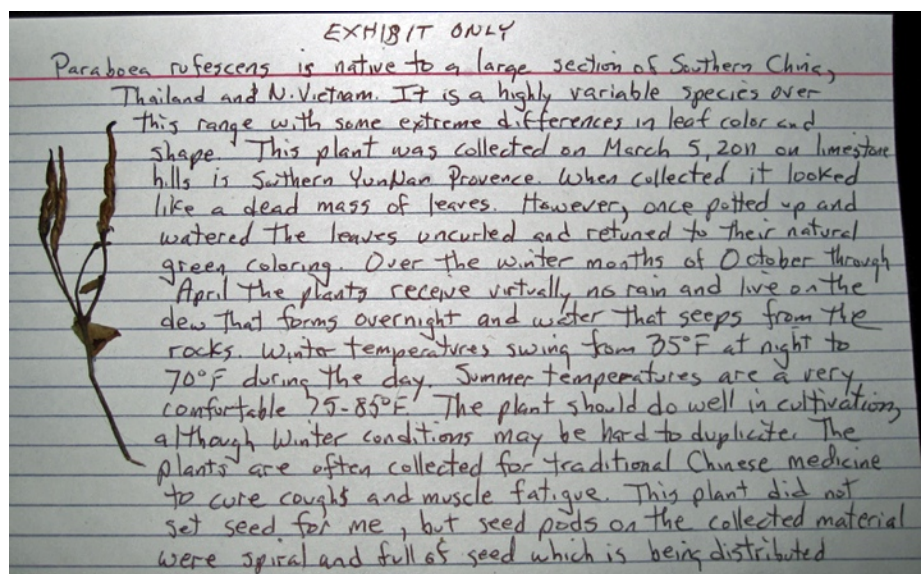 EXHIBIT ONLY
Paraboea rufescens is native to a large section of Southern China,
Thailand and N. Vietnam. It is a highly variable species over
this range with some extreme differences in leaf color and
shape. This plant was collected on March 5, 2011 on limestone
hills is Southern YunNan Provence. When collected it looked
like a dead mass of leaves. However, once potted up and
watered the leaves uncurled and retuned to their natural
green coloring. Over the winter months of October through
April the plants receive virtually no rain and live on the
dew that forms overnight and water that seeps from the
rocks. Winter temperatures swing from 35°F at night to
70°F during the day. Summer temperatures are a very
comfortable 75-85°F. The plant should do well in cultivation,
although Winter conditions may be hard to duplicate. The
plants are often collected for traditional Chinese medicine
to cure coughs and muscle fatigue. This plant did not
set seed for me, but seed pods on the collected material
were spiral and full of seed which is being distributed